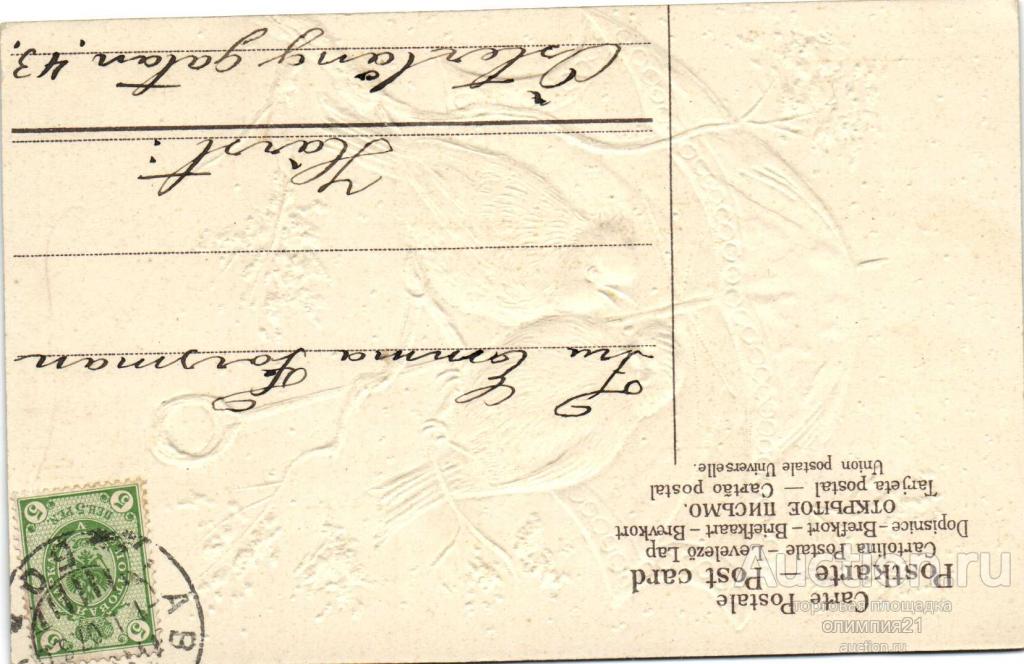 Carte Postale
Postkarte – Post card
Cartolina Postale – Levelező Lap
Dopisnice – Brefkort – Briefkaart – Brevkort
ОТКРЫТОЕ ПИСЬМО.
Tarjeta postal — Cartão postal
Union postale Universelle.
Fru Emma Forsman
Härst:
Österlånggatan 43,
5
5
5
FEM PEN.
ABO
Auction.ru
торговая площадка
олимпия21
auction.ru